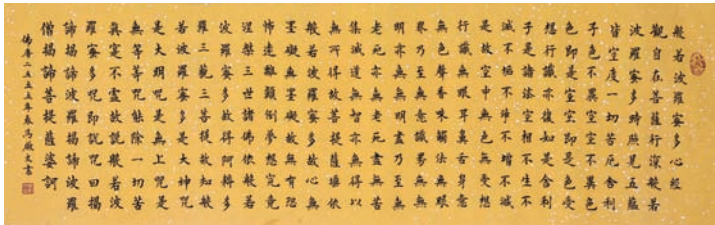 般若波羅蜜多心經
觀自在菩薩行深般若
波羅蜜多時照見五蘊
皆空度一切苦厄舍利
子色不異空空不異色
色即是空空即是色受
想行識亦復如是舍利
子是諸法空相不生不
滅不垢不淨不增不減
是故空中無色無受想
行識無眼耳鼻舌身意
無色聲香味觸法無眼
界乃至無意識界無無
明亦無無明盡乃至無
老死亦無老死盡無苦
集滅道無智亦無得以
無所得故菩提薩埵依
般若波羅蜜多故心無
罣礙無罣礙故無有恐
怖遠離顛倒夢想究竟
涅槃三世諸佛依般若
波羅蜜多故得阿耨多
羅三藐三菩提故知般
若波羅蜜多是大神咒
是大明咒是無上咒是
無等等咒能除一切苦
真實不虛故說般若波
羅蜜多咒即說咒曰揭
諦揭諦波羅揭諦波羅
僧揭諦菩提薩婆訶
佛曆二五五五年春馮啟文書